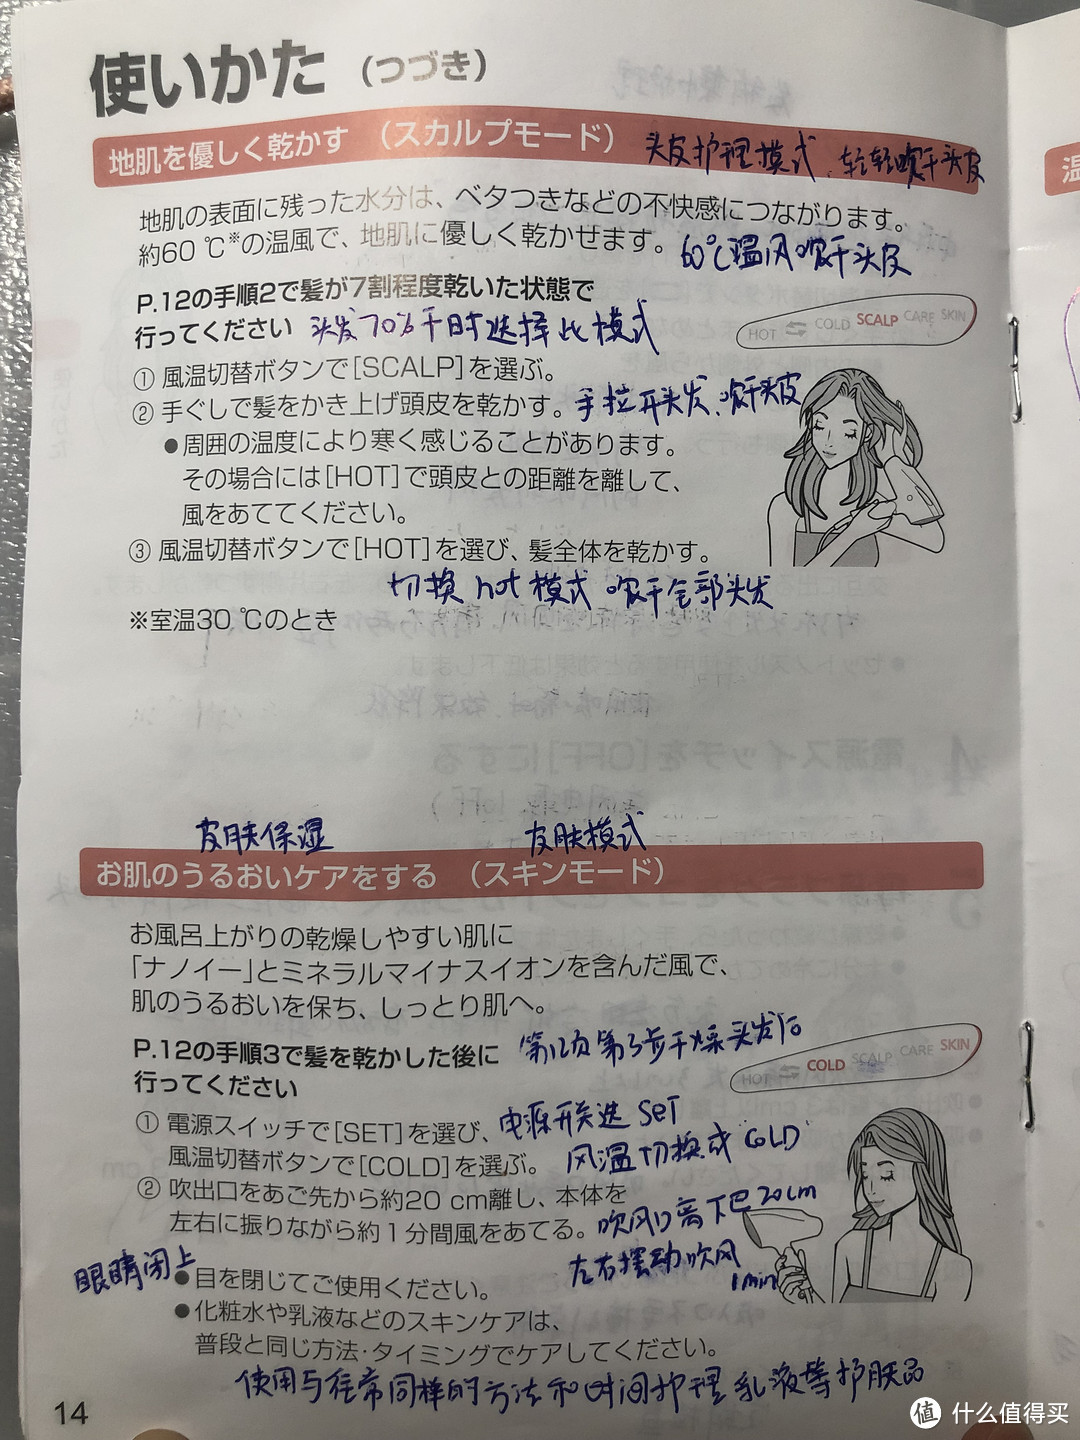 使いかた (つづき)
地肌を優しく乾かす (スカルプモード) 头皮护理模式、轻轻吹干头皮
地肌の表面に残った水分は、ベタつきなどの不快感につながります。
約60 ℃※の温風で、地肌に優しく乾かせます。 60℃温风吹干头皮
P.12の手順2で髪が7割程度乾いた状態で
行ってください 头发70%干时选择此模式
HOT ⇆ COLD SCALP CARE SKIN
① 風温切替ボタンで[SCALP]を選ぶ。
② 手ぐしで髪をかき上げ頭皮を乾かす。 手拉开头发、吹头皮
●周囲の温度により寒く感じることがあります。
その場合には[HOT]で頭皮との距離を離して、
風をあててください。
③ 風温切替ボタンで[HOT]を選び、髪全体を乾かす。
切换 hot 模式 吹干全部头发
※室温30 ℃のとき
皮肤保湿 皮肤模式
お肌のうるおいケアをする (スキンモード)
お風呂上がりの乾燥しやすい肌に
「ナノイー」とミネラルマイナスイオンを含んだ風で、
肌のうるおいを保ち、しっとり肌へ。
P.12の手順3で髪を乾かした後に 第12页第3步干燥头发后
行ってください
HOT ⇆ COLD SCALP CARE SKIN
① 電源スイッチで[SET]を選び、 电源开关选 SET
風温切替ボタンで[COLD]を選ぶ。 风温切换成 COLD
② 吹出口をあご先から約20 cm離し、本体を
左右に振りながら約1分間風をあてる。 吹风口离下巴20cm
左右摆动吹风
1min
眼睛闭上
●目を閉じてご使用ください。
●化粧水や乳液などのスキンケアは、
普段と同じ方法・タイミングでケアしてください。
使用与往常同样的方法和时间护理乳液等护肤品
14
值 什么值得买